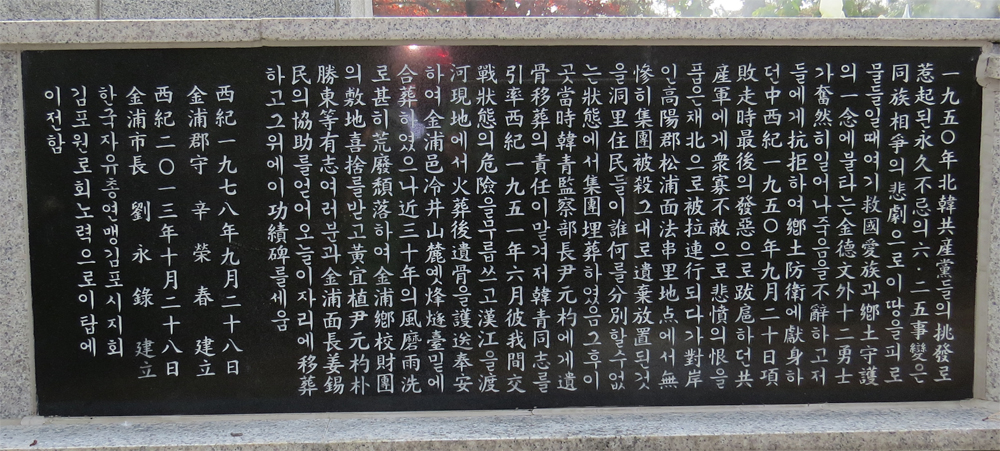 一九五○年北韓共産黨들의挑發로
惹起된永久不忘의六·二五事變은
同族相爭의悲劇으로이땅을피로
물들일때여기救國愛族과鄕土守護
의一念에불타는金德文外十二勇士
가奮然히일어나죽음을不辭하고저
들에게抗拒하여鄕土防衛에獻身하
던中西紀一九五○年九月二十日項
敗走時最後의發惡으로跋扈하던共
産軍에게衆寡不敵으로悲憤의恨을
품은채北으로被拉連行되다가對岸
인高陽郡松浦面法串里地点에서無
慘히集團被殺그대로遺棄放置된것
을洞里住民들이誰何를分別할수없
는狀態에서集團埋葬하였음그후이
곳當時韓靑監察部長尹元杓에게遺
骨移葬의責任이맡겨저韓靑同志를
引率西紀一九五一年六月彼我間交
戰狀態의危險을무릅쓰고漢江을渡
河現地에서火葬後遺骨을護送奉安
하여金浦邑冷井山麓옛烽燧臺밑에
合葬하였으나近三十年의風磨雨洗
로甚히荒廢頹落하여金浦鄕校財團
의敷地喜捨를받고黃宜植尹元杓朴
勝東等有志여러분과金浦面長姜錫
民의協助를얻어오늘이자리에移葬
하고그위에이功績碑를세움
西紀一九七八年九月二十八日
金浦郡守 辛榮春 建立
西紀二○一三年十月二十八日
金浦市長 劉永錄 建立
한국자유총연맹김포시지회
김포원로회노력으로이탑에
이전함